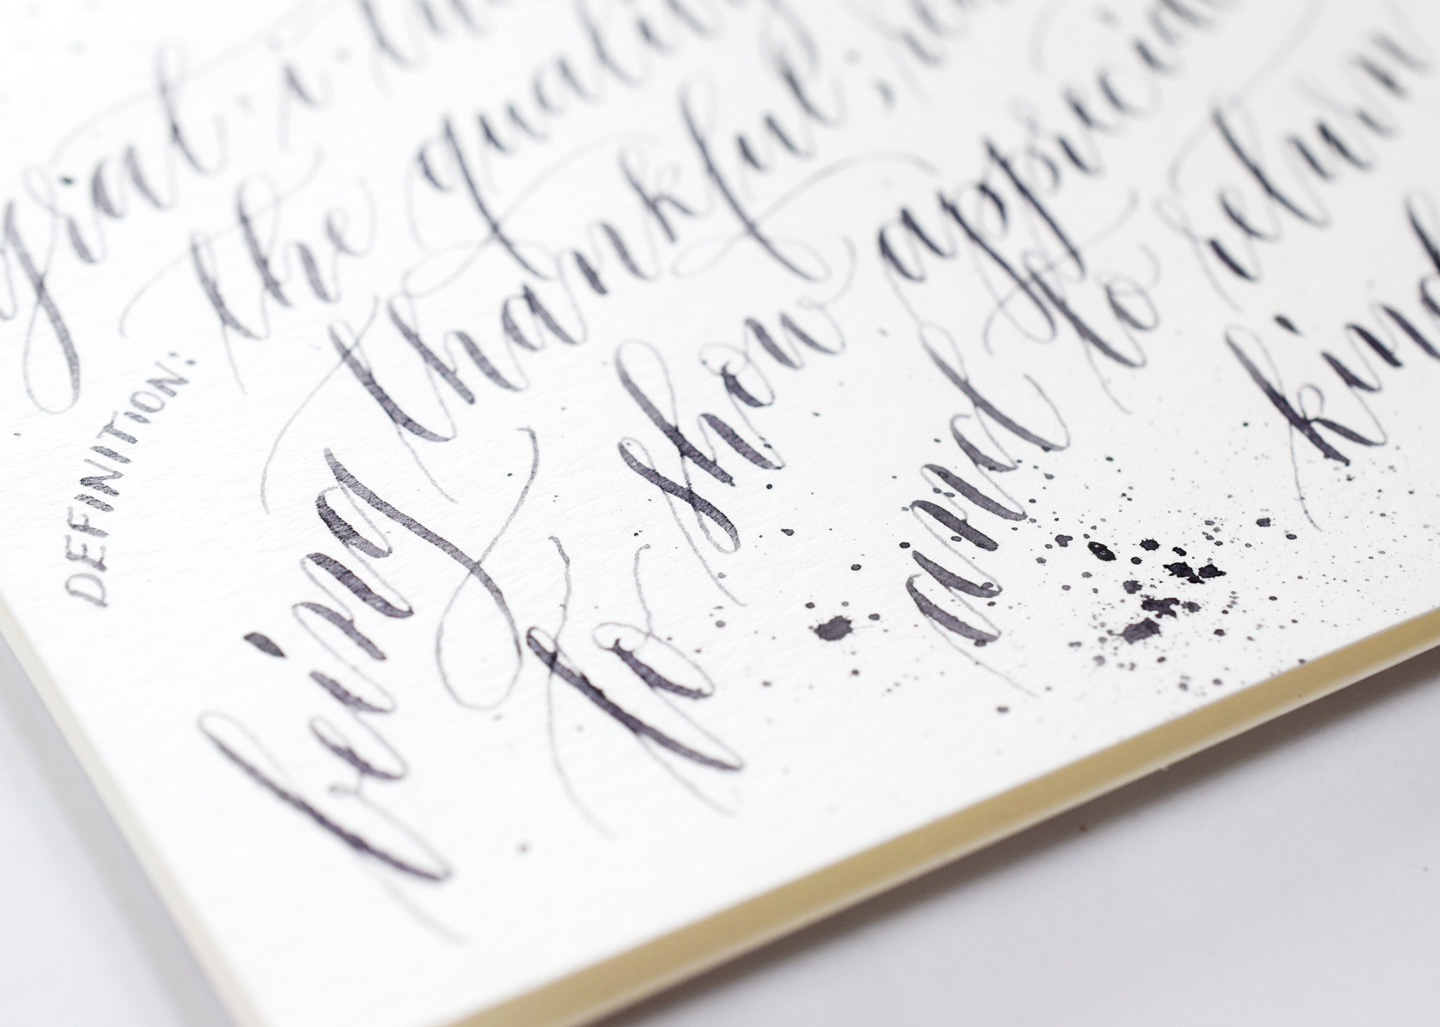 grat·i·tu
DEFINITION:
the quality
being thankful; rea
to show apprecia
and to return
kind